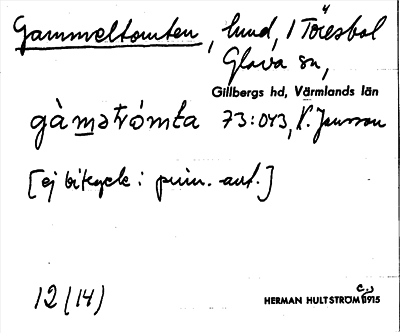 Gammeltomten, lund, 1 Töresbol
Glava sn,
Gillbergs hd, Värmlands län
gàmətómta 73:043, V. Jansson
[ej bitryck: prim. ant.]
12 (14)
HERMAN HULTSTRÖM 1915